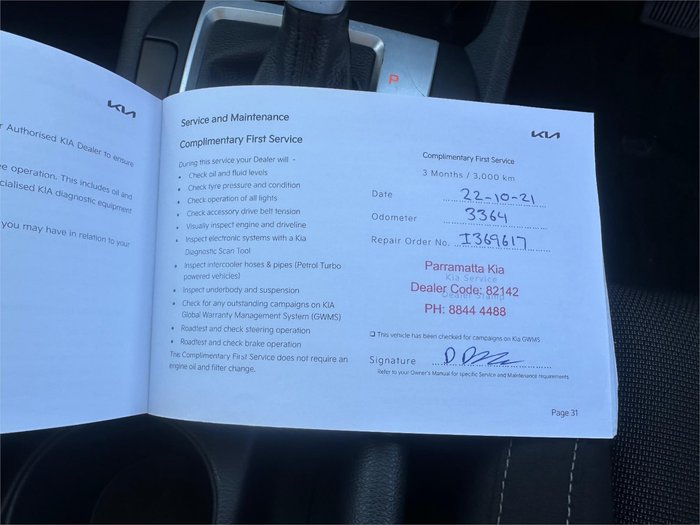 P
KIA
r Authorised KIA Dealer to ensure
e operation. This includes oil and
cialised KIA diagnostic equipment
you may have in relation to your
Service and Maintenance
Complimentary First Service
During this service your Dealer will -
• Check oil and fluid levels
• Check tyre pressure and condition
• Check operation of all lights
• Check accessory drive belt tension
• Visually inspect engine and driveline
• Inspect electronic systems with a Kia
Diagnostic Scan Tool
• Inspect intercooler hoses & pipes (Petrol Turbo
powered vehicles)
• Inspect underbody and suspension
• Check for any outstanding campaigns on KIA
Global Warranty Management System (GWMS)
• Roadtest and check steering operation
• Roadtest and check brake operation
This Complimentary First Service does not require an
engine oil and filter change.
KIA
Complimentary First Service
3 Months / 3,000 km
Date 22-10-21
Odometer 3364
Repair Order No. I369617
Parramatta Kia
Kia Service
Dealer Code: 82142
Dealer Stamp
PH: 8844 4488
☐ This vehicle has been checked for campaigns on Kia GWMS
Signature
Refer to your Owner's Manual for specific Service and Maintenance requirements
Page 31